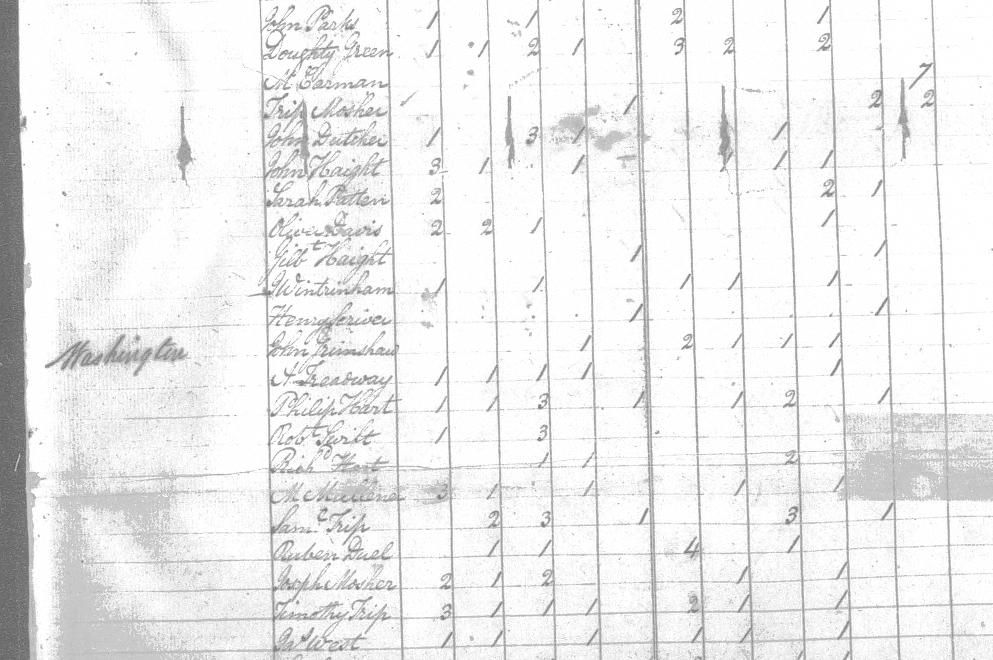 John Parks 1 1 2 1
Doughty Green 1 1 2 1 3 2 2
7
Trip Mosher 1 2 2
John Dutcher 1 3 1 1
John Haight 3 1 1 1 1 1
Sarah Patten 2 2 1
Oliver Davis 2 2 1 1
Gilbt Haight 1 1
Wintrinham 1 1 1 1 1
Henry Scriver 1 1
Washington John Grimshaw 1 2 1 1 1
A Treadway 1 1 1 1 1
Philip Hart 1 1 3 1 1 2 1
Robt Swift 1 3
Richd Hart 1 1 2
M 3 1 1 1 1
Saml Trip 2 3 1 3 1
Ruben Duel 1 1 4 1
Joseph Mosher 2 1 2 1 1
Timothy Trip 3 1 1 1 2 1 1
West 1 1 1 1 1 1